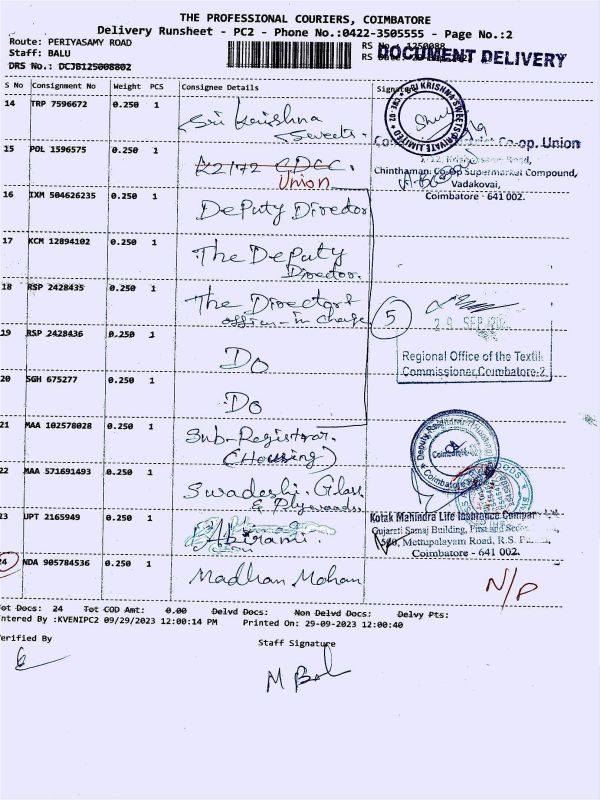 THE PROFESSIONAL COURIERS, COIMBATORE
Delivery Runsheet - PC2 - Phone No.:0422-3505555 - Page No.:2
Route: PERIYASAMY ROAD
RS No.: 1250088
Staff: BALU
RS
DOCUMENT DELIVERY
DRS No.: DCJB125008802
S No Consignment No Weight PCS Consignee Details Signature
14 TRP 7596672 0.250 1 Sri Krishna
Sweets.
SRI KRISHNA SWEETS PRIVATE LIMITED
CBE-02
Co-op. Union
15 POL 1596575 0.250 1 K2172 CDCC.
Union
Road,
Chinthamani Co-Op Supermarket Compound,
Vadakovai,
Coimbatore - 641 002.
16 IXM 504626235 0.250 1 Deputy Director
17 KCM 12894102 0.250 1 The Deputy
Director.
18 RSP 2428435 0.250 1 The Director &
officer-in charge
5
29 SEP
19 RSP 2428436 0.250 1 Do
Regional Office of the Textile
Commissioner, Coimbatore-2.
20 SGH 675277 0.250 1 Do
21 MAA 102578028 0.250 1 Sub-Registrar.
(Housing)
Deputy Registrar
Coimbatore
22 MAA 571691493 0.250 1 Swadeshi. Glass
& Plywoods.
23 UPT 2165949 0.250 1 Abirami.
Kotak Mahindra Life Insurance Company
Gujarati Samaj Building, First and Second
Mettupalayam Road, R.S. Puram,
Coimbatore - 641 002.
24 NDA 905784536 0.250 1 Madhan Mohan
N/P
Tot Docs: 24 Tot COD Amt: 0.00 Delvd Docs: Non Delvd Docs: Delvy Pts:
Entered By :KVENIPC2 09/29/2023 12:00:14 PM Printed On: 29-09-2023 12:00:40
Verified By
Staff Signature